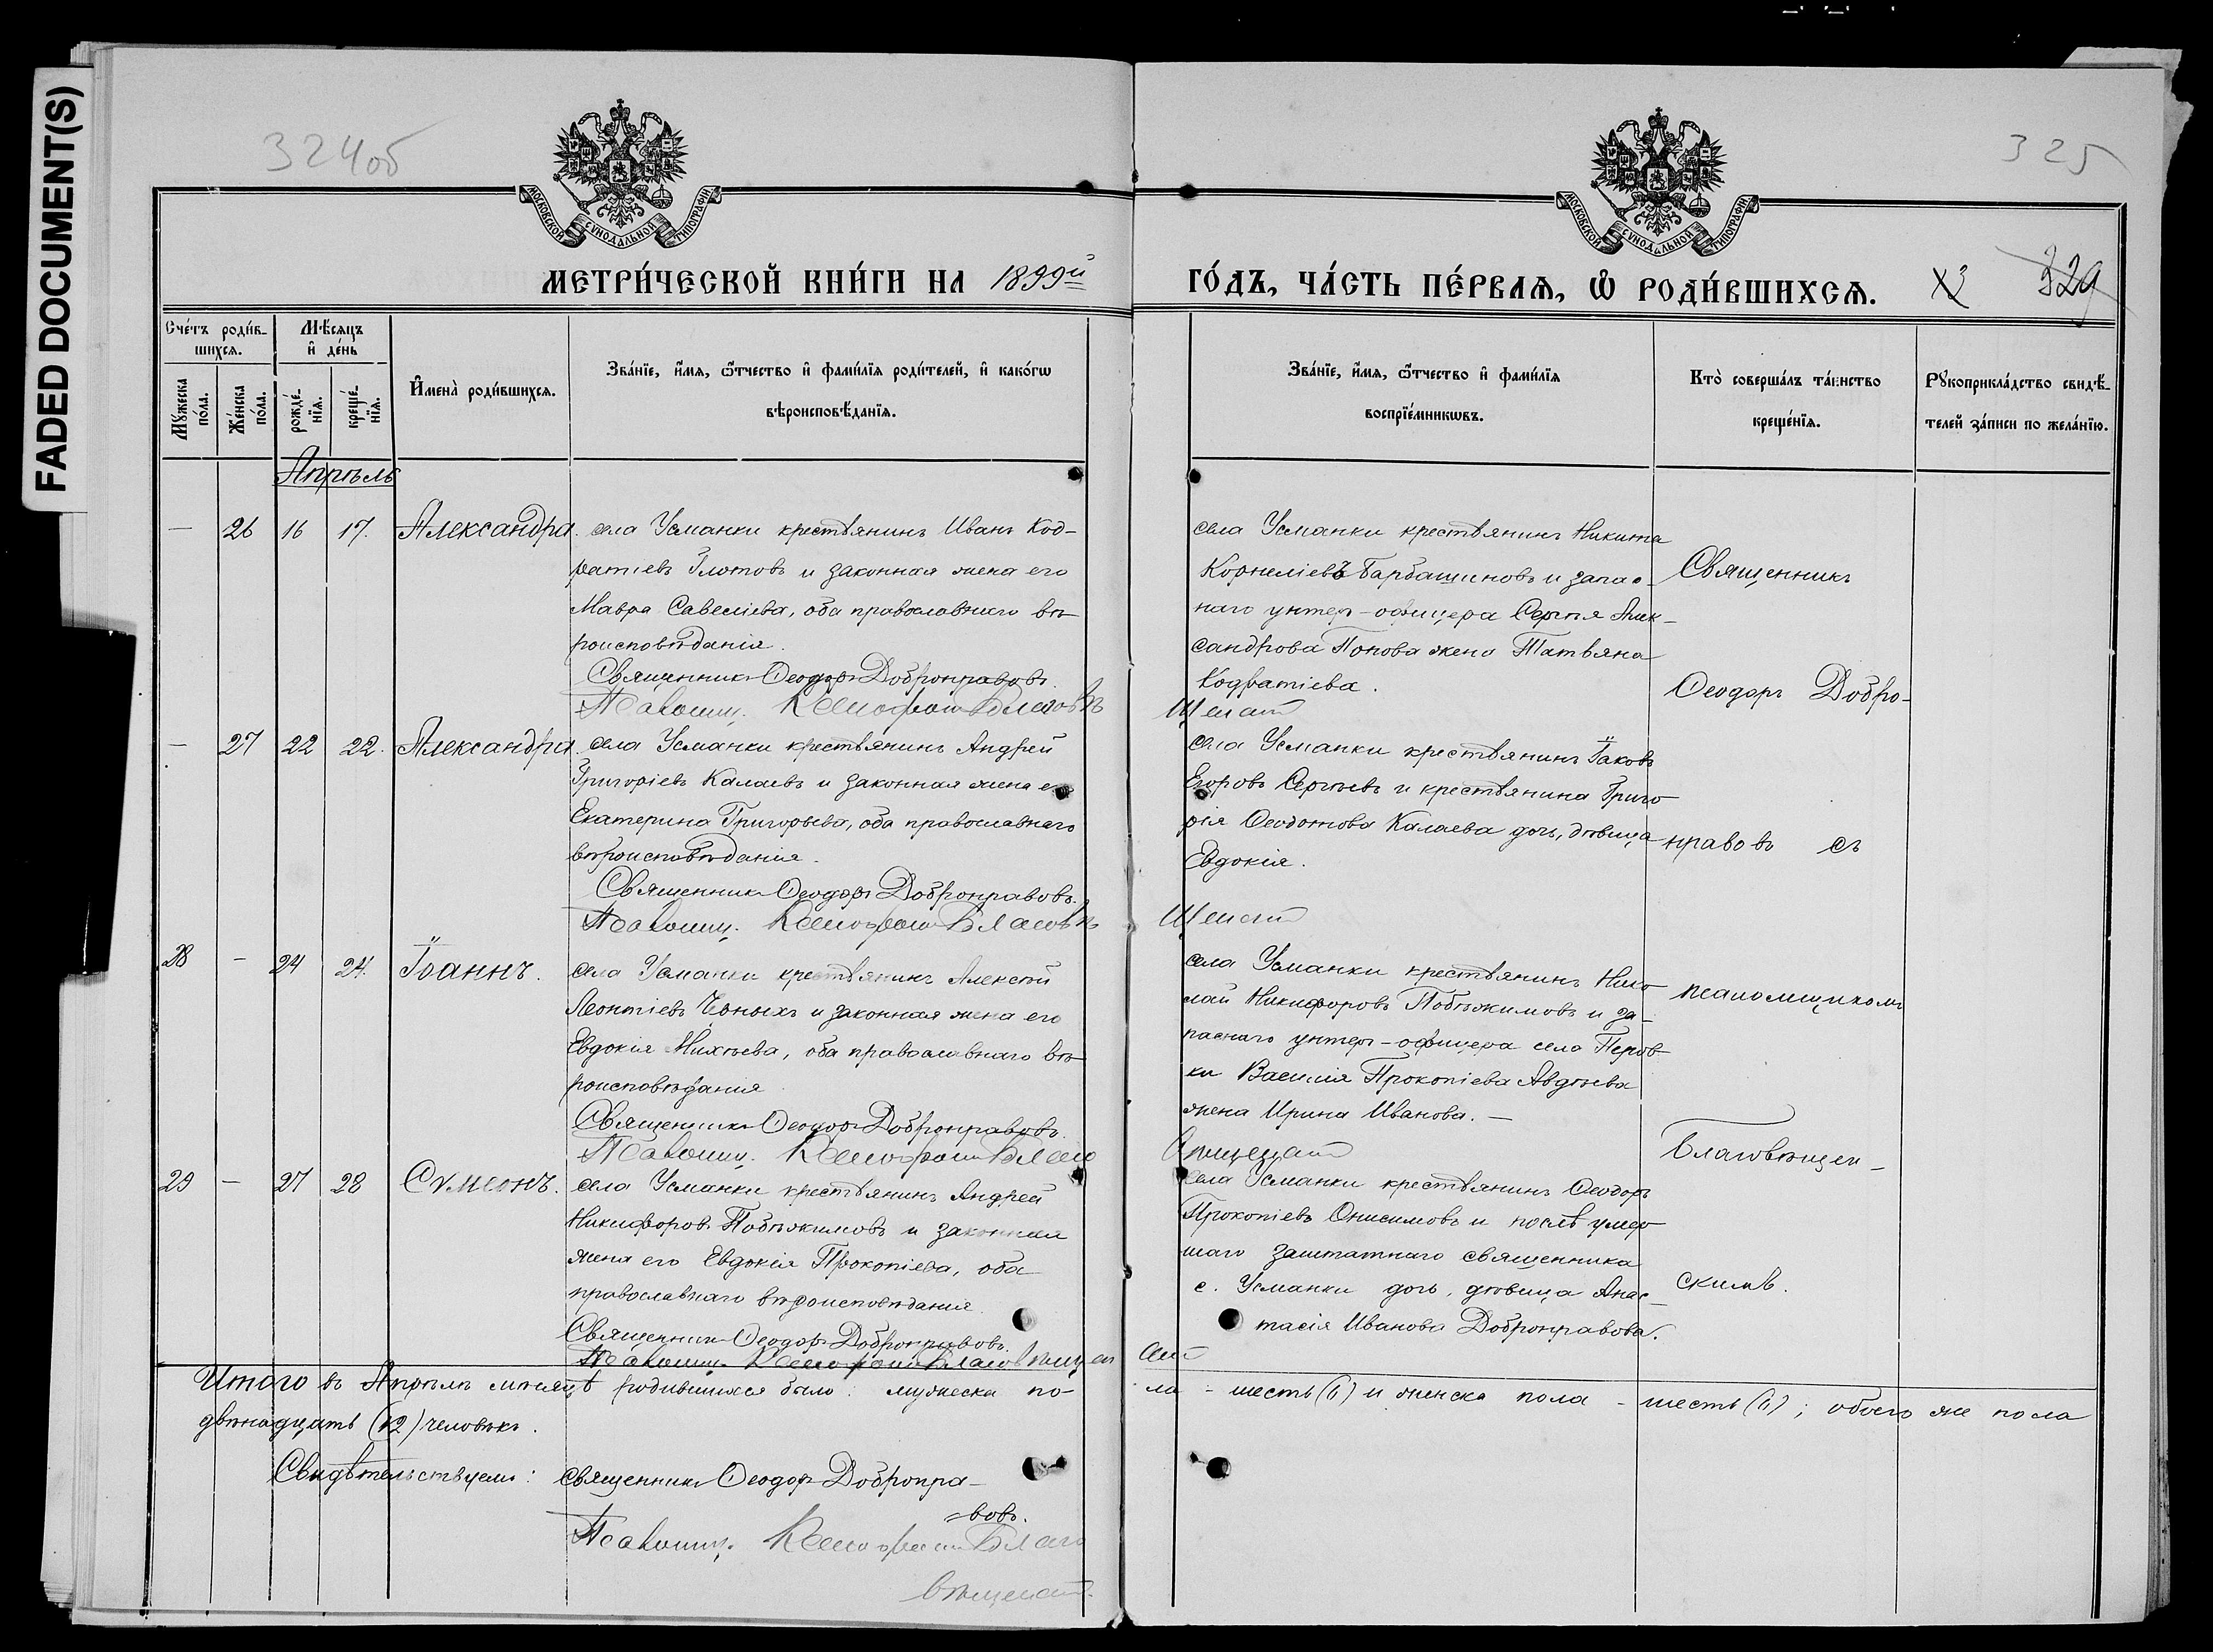 FADED DOCUMENT(S)
324об
325
МОСКОВСКОЙ СѴНОДАЛЬНОЙ ТИПОГРАФІИ
МОСКОВСКОЙ СѴНОДАЛЬНОЙ ТИПОГРАФІИ
МЕТРИ́ЧЕСКОЙ КНИ́ГИ НА 1899й
ГО́ДЪ, ЧА́СТЬ ПЕ́РВАѦ, Ѡ҆ РОДИ́ВШИХСѦ.
329
Сче́тъ роди́в-
шихсѧ.
Мѣ́сѧцъ
и҆ де́нь
Мꙋ́жеска
по́ла.
Же́нска
по́ла.
рожде́-
нїѧ.
креще́-
нїѧ.
И҆мена̀ роди́вшихсѧ.
Зва́нїе, и҆́мѧ, ѻ҆́тчество и҆ фами́лїѧ роди́телей, и҆ како́гѡ
вѣроисповѣ́данїѧ.
Зва́нїе, и҆́мѧ, ѻ҆́тчество и҆ фами́лїѧ
воспрїе́мникѡвъ.
Кто̀ соверша́лъ та́инство
креще́нїѧ.
Рꙋкоприкла́дство свидѣ́-
телей за́писи по жела́нїю.
Апрѣль
— 26 16 17. Александра. села Усманки крестьянинъ Иванъ Код-
ратіевъ Глотовъ и законная жена его
Мавра Савеліева, оба православнаго вѣ-
роисповѣданія.
Священникъ Ѳеодоръ Доброправовъ.
Псаломщ. Ксенофонтъ Благовѣ
щенскій
села Усманки крестьянинъ Никита
Корнеліевъ Барбашиновъ и запас-
наго унтеръ-офицера Сергѣя Алек-
сандрова Попова жена Татьяна
Кодратіева.
— 27 22 22. Александра. села Усманки крестьянинъ Андрей
Григоріевъ Калаевъ и законная жена его
Екатерина Григорьева, оба православнаго
вѣроисповѣданія.
Священникъ Ѳеодоръ Доброправовъ.
Псаломщ. Ксенофонтъ Благовѣ
щенскій
села Усманки крестьянинъ Іаковъ
Егоровъ Сергѣевъ и крестьянина Григо
рія Ѳеодотова Калаева дочь, дѣвица
Евдокія.
28 — 24 24. Іоаннъ. села Усманки крестьянинъ Алексѣй
Леонтіевъ Черныхъ и законная жена его
Евдокія Михѣева, оба православнаго вѣ-
роисповѣданія
Священникъ Ѳеодоръ Доброправовъ.
Псаломщ. Ксенофонтъ Благо
вѣщенскій
села Усманки крестьянинъ Нико
лай Никифоровъ Побѣжимовъ и за-
паснаго унтеръ-офицера села Перов-
ки Василія Прокопіева Авдѣева
жена Ирина Иванова. —
29 — 27 28 Сѵмеонъ. села Усманки крестьянинъ Андрей
Никифоровъ Побѣжимовъ и законная
жена его Евдокія Прокопіева, оба
православнаго вѣроисповѣданія.
Священникъ Ѳеодоръ Доброправовъ.
Псаломщ. Ксенофонтъ Благовѣщен
скій
села Усманки крестьянинъ Ѳеодоръ
Прокопіевъ Онисимовъ и послѣ умер
шаго заштатнаго священника
с. Усманки дочь, дѣвица Анас-
тасія Иванова Доброправова.
Священникъ
Ѳеодоръ Добро-
нравовъ съ
псаломщикомъ
Благовѣщен-
скимъ.
Итого въ Апрѣлѣ мѣсяцѣ родившихся было: мужеска по-
ла - шесть (6) и женска пола - шесть (6); обоего же пола
двѣнадцать (12) человѣкъ.
Свидѣтельствуемъ: священникъ Ѳеодоръ Добропра-
вовъ.
Псаломщ. Ксенофонтъ Благо
вѣщенскій